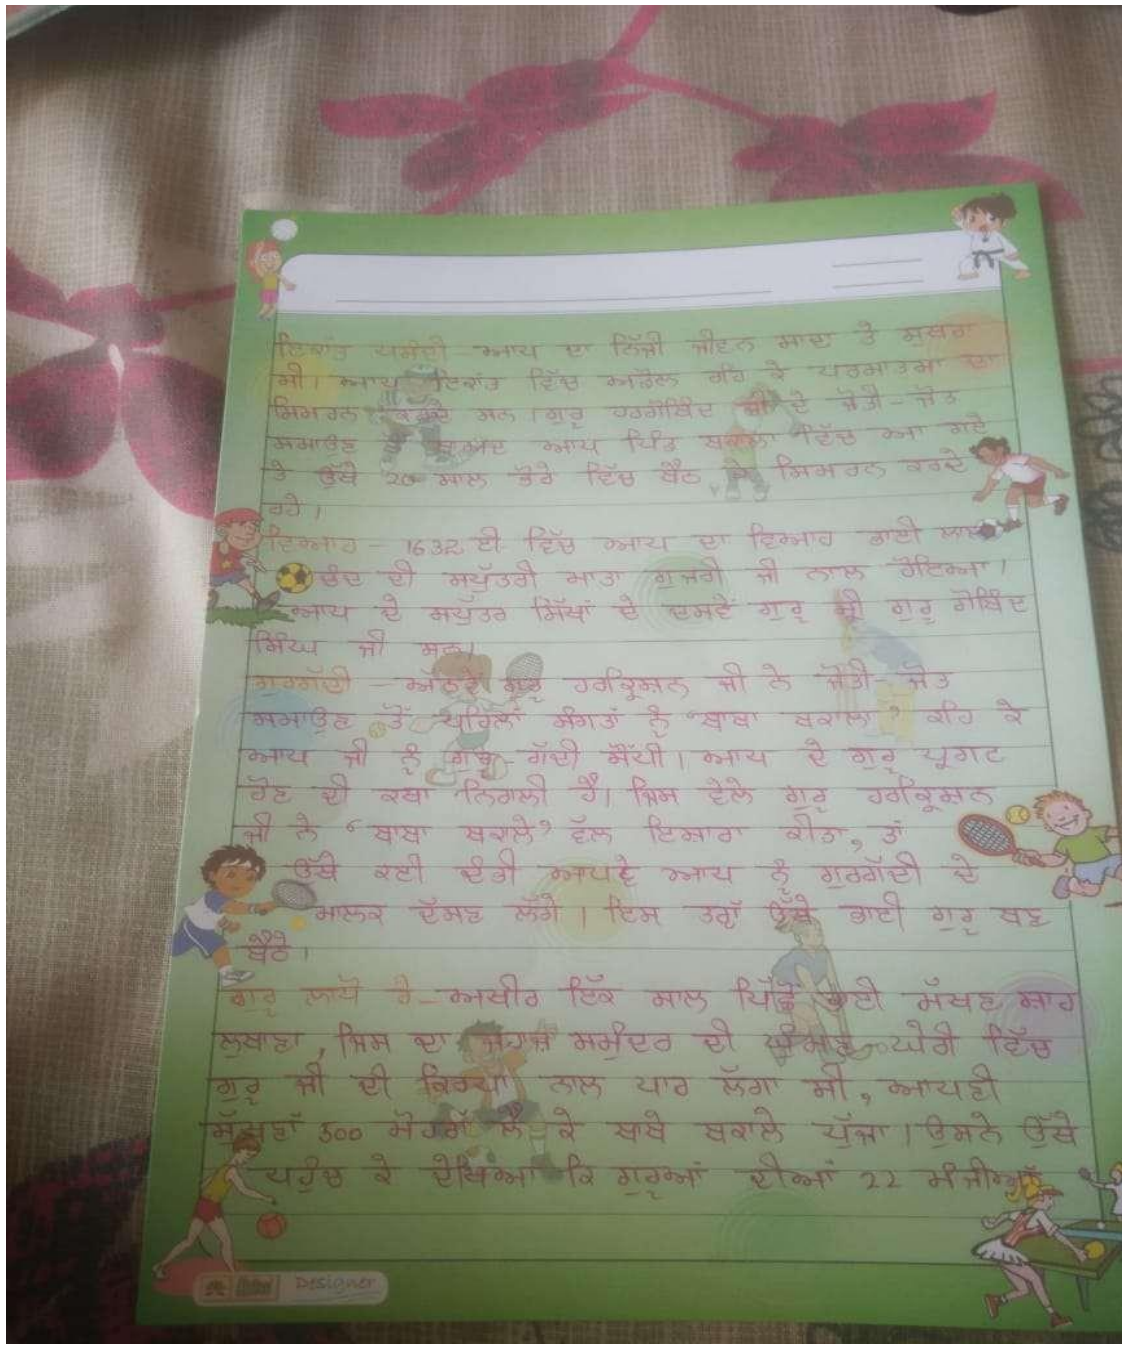 ਇਕਾਂਤ ਪਸੰਦੀ - ਆਪ ਦਾ ਨਿੱਜੀ ਜੀਵਨ ਸਾਦਾ ਤੇ ਸੁਥਰਾ
ਸੀ। ਆਪ ਇਕਾਂਤ ਵਿੱਚ ਅਡੋਲ ਰਹਿ ਕੇ ਪਰਮਾਤਮਾ ਦਾ
ਸਿਮਰਨ ਕਰਦੇ ਸਨ। ਗੁਰੂ ਹਰਗੋਬਿੰਦ ਜੀ ਦੇ ਜੋਤੀ-ਜੋਤ
ਸਮਾਉਣ ਬਾਅਦ ਆਪ ਪਿੰਡ ਬਕਾਲਾ ਵਿੱਚ ਆ ਗਏ
ਤੇ ਉੱਥੇ 20 ਸਾਲ ਭੋਰੇ ਵਿੱਚ ਬੈਠ ਕੇ ਸਿਮਰਨ ਕਰਦੇ
ਰਹੇ।
ਵਿਆਹ - 1632 ਈ. ਵਿੱਚ ਆਪ ਦਾ ਵਿਆਹ ਭਾਈ ਲਾਲ
ਚੰਦ ਦੀ ਸਪੁੱਤਰੀ ਮਾਤਾ ਗੁਜਰੀ ਜੀ ਨਾਲ ਹੋਇਆ।
ਆਪ ਦੇ ਸਪੁੱਤਰ ਸਿੱਖਾਂ ਦੇ ਦਸਵੇਂ ਗੁਰੂ ਸ੍ਰੀ ਗੁਰੂ ਗੋਬਿੰਦ
ਸਿੰਘ ਜੀ ਸਨ।
ਗੁਰਗੱਦੀ - ਅੱਠਵੇਂ ਗੁਰੂ ਹਰਕ੍ਰਿਸ਼ਨ ਜੀ ਨੇ ਜੋਤੀ-ਜੋਤ
ਸਮਾਉਣ ਤੋਂ ਪਹਿਲਾਂ ਸੰਗਤਾਂ ਨੂੰ 'ਬਾਬਾ ਬਕਾਲਾ' ਕਹਿ ਕੇ
ਆਪ ਜੀ ਨੂੰ ਗੁਰੂ-ਗੱਦੀ ਸੌਂਪੀ। ਆਪ ਦੇ ਗੁਰੂ ਪ੍ਰਗਟ
ਹੋਣ ਦੀ ਕਥਾ ਨਿਰਾਲੀ ਹੈ। ਜਿਸ ਵੇਲੇ ਗੁਰੂ ਹਰਕ੍ਰਿਸ਼ਨ
ਜੀ ਨੇ 'ਬਾਬਾ ਬਕਾਲੇ' ਵੱਲ ਇਸ਼ਾਰਾ ਕੀਤਾ, ਤਾਂ
ਉੱਥੇ ਕਈ ਦੰਭੀ ਆਪਣੇ ਆਪ ਨੂੰ ਗੁਰਗੱਦੀ ਦੇ
ਮਾਲਕ ਦੱਸਣ ਲੱਗੇ। ਇਸ ਤਰ੍ਹਾਂ ਉੱਥੇ ਬਾਈ ਗੁਰੂ ਬਣ
ਬੈਠੇ।
ਗੁਰੂ ਲਾਧੋ ਰੇ - ਅਖੀਰ ਇੱਕ ਸਾਲ ਪਿੱਛੋਂ ਭਾਈ ਮੱਖਣ ਸ਼ਾਹ
ਲੁਬਾਣਾ, ਜਿਸ ਦਾ ਜਹਾਜ਼ ਸਮੁੰਦਰ ਦੀ ਘੇਰੀ ਵਿੱਚ
ਗੁਰੂ ਜੀ ਦੀ ਕਿਰਪਾ ਨਾਲ ਪਾਰ ਲੱਗਾ ਸੀ, ਆਪਣੀ
500 ਮੋਹਰਾਂ ਲੈ ਕੇ ਬਾਬੇ ਬਕਾਲੇ ਪੁੱਜਾ। ਉਸਨੇ ਉੱਥੇ
ਪਹੁੰਚ ਕੇ ਦੇਖਿਆ ਕਿ ਗੁਰੂਆਂ ਦੀਆਂ 22 ਮੰਜੀਆਂ
Designer